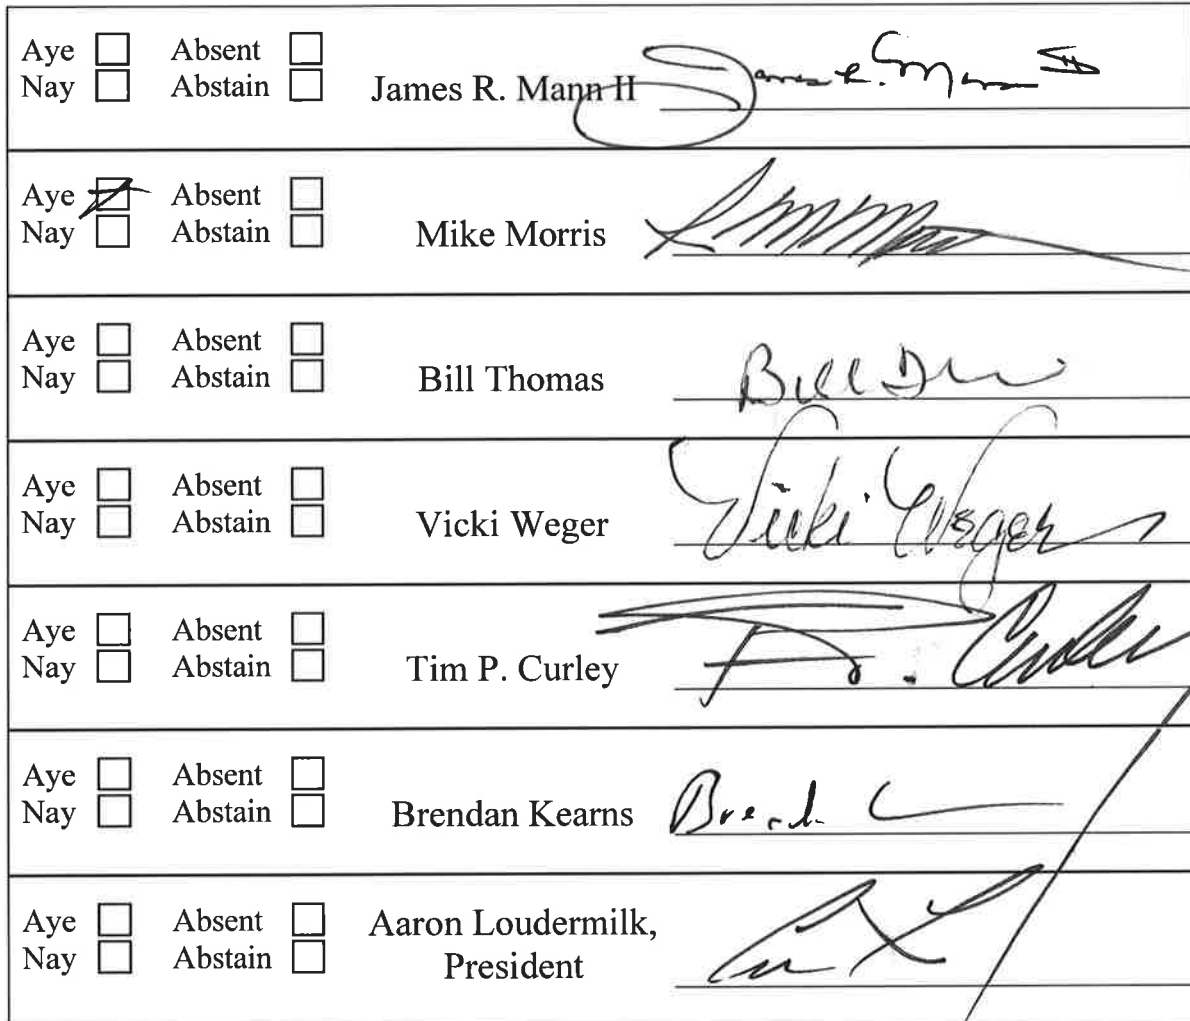 Aye ☐ Absent ☐
Nay ☐ Abstain ☐ James R. Mann II James R. Mann II
Aye ☒ Absent ☐
Nay ☐ Abstain ☐ Mike Morris
Aye ☐ Absent ☐
Nay ☐ Abstain ☐ Bill Thomas Bill
Aye ☐ Absent ☐
Nay ☐ Abstain ☐ Vicki Weger Vicki Weger
Aye ☐ Absent ☐
Nay ☐ Abstain ☐ Tim P. Curley Curley
Aye ☐ Absent ☐
Nay ☐ Abstain ☐ Brendan Kearns
Aye ☐ Absent ☐ Aaron Loudermilk,
Nay ☐ Abstain ☐ President